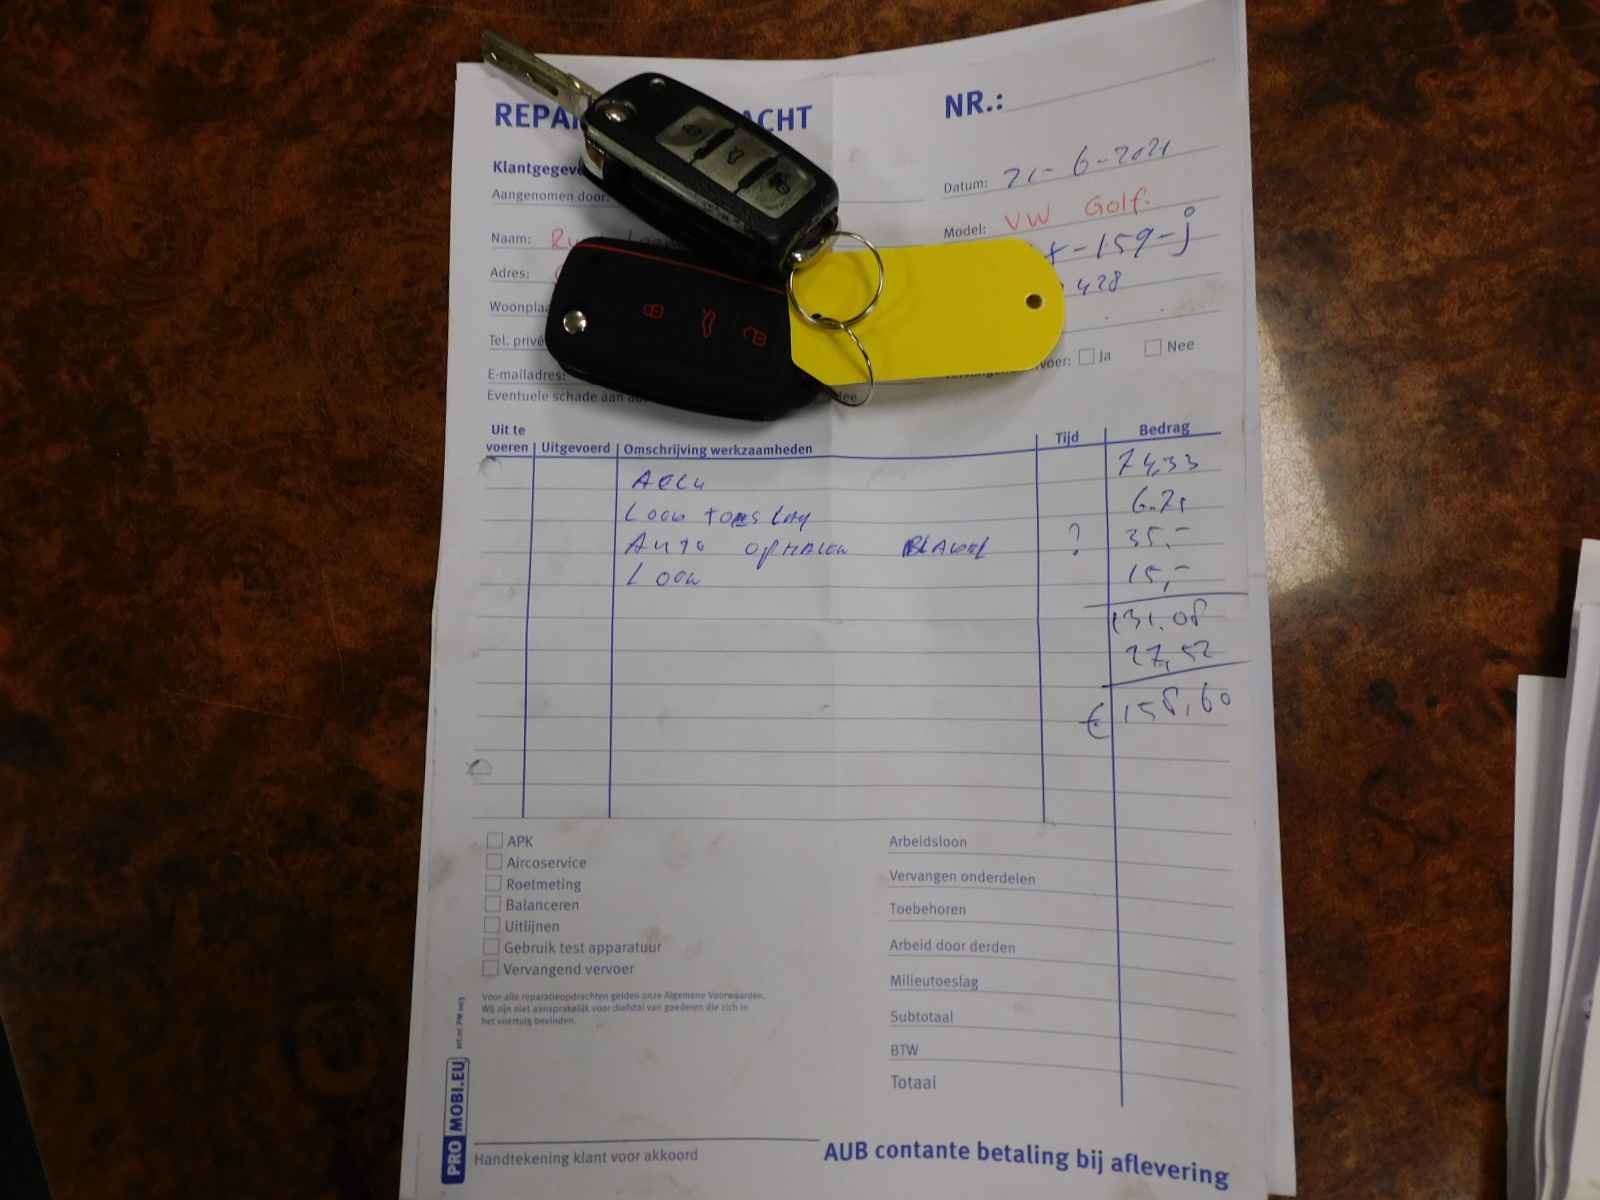 REPA ACHT
NR.:
Klantgegeve
Datum: 21-6-2021
Aangenomen door:
Model: VW Golf.
Naam: Ru
-159-j
Adres:
428
Woonpla
Tel. privé
voer: Ja Nee
E-mailadres:
Eventuele schade aan
Uit te voeren Uitgevoerd Omschrijving werkzaamheden Tijd Bedrag
Accu 74,33
Lood toeslag 6.75
Auto ophalen ? 35,-
Loon 15,-
131.08
27,52
€ 158,60
APK
Aircoservice
Roetmeting
Balanceren
Uitlijnen
Gebruik test apparatuur
Vervangend vervoer
Arbeidsloon
Vervangen onderdelen
Toebehoren
Arbeid door derden
Milieutoeslag
Subtotaal
BTW
Totaal
Voor alle reparatieopdrachten gelden onze Algemene Voorwaarden.
Wij zijn niet aansprakelijk voor diefstal van goederen die zich in
het voertuig bevinden.
PROMOBI.EU
Handtekening klant voor akkoord
AUB contante betaling bij aflevering